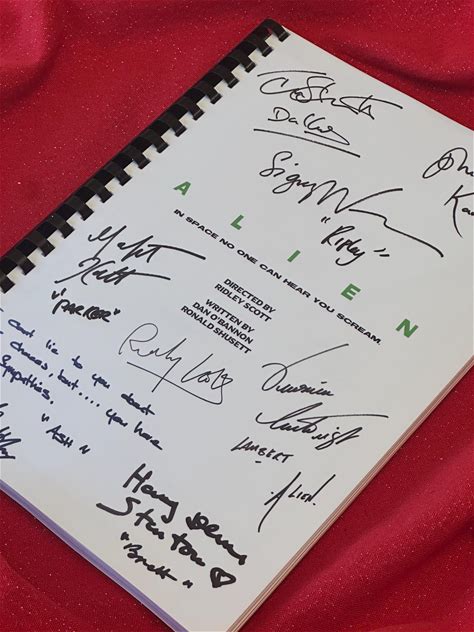 Dallas
Sigourney W
"Ripley"
ALIEN
IN SPACE NO ONE CAN HEAR YOU SCREAM.
DIRECTED BY
RIDLEY SCOTT
WRITTEN BY
DAN O'BANNON
RONALD SHUSETT
"PARKER"
Ridley Scott
Veronica
Cartwright
LAMBERT
ALIEN.
lie to you about
chances, but.... you have
Sympathies,
"ASH"
Harry Dean
Stanton
"Brett"